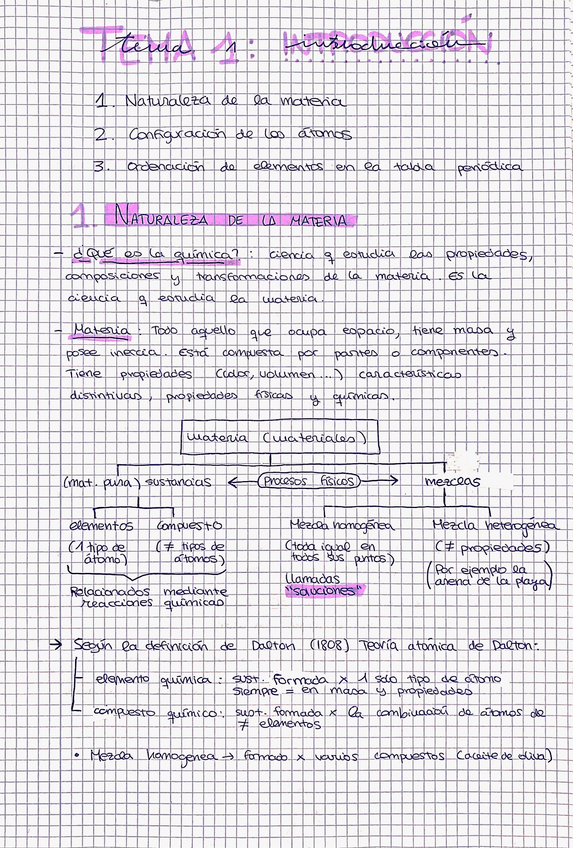 TEMA 1: INTRODUCCIÓN
tema 1: introducción
1. Naturaleza de la materia
2. Configuración de los átomos
3. Ordenación de elementos en la tabla periódica
1. NATURALEZA DE LA MATERIA
- ¿QUÉ es la química? : ciencia q estudia las propiedades,
composiciones y transformaciones de la materia. Es la
ciencia q estudia la materia.
- Materia : Todo aquello que ocupa espacio, tiene masa y
posee inercia. Está compuesta por partes o componentes.
Tiene propiedades (color, volumen...) características
distintivas, propiedades físicas y químicas.
materia (materiales)
(mat. pura) sustancias ← Procesos físicos → mezclas
elementos compuesto Mezcla homogénea Mezcla heterogénea
(1 tipo de átomo) (≠ tipos de átomos) (toda igual en todos sus puntos) (≠ propiedades)
Relacionados mediante reacciones químicas
llamadas "soluciones"
(Por ejemplo la arena de la playa)
→ Según la definición de Dalton (1808) Teoría atómica de Dalton:
- elemento química : sust. formada x 1 solo tipo de átomo
siempre = en masa y propiedades
- compuesto químico: sust. formada x la combinación de átomos de
≠ elementos
• Mezcla homogenea → formado x varios compuestos (aceite de oliva)